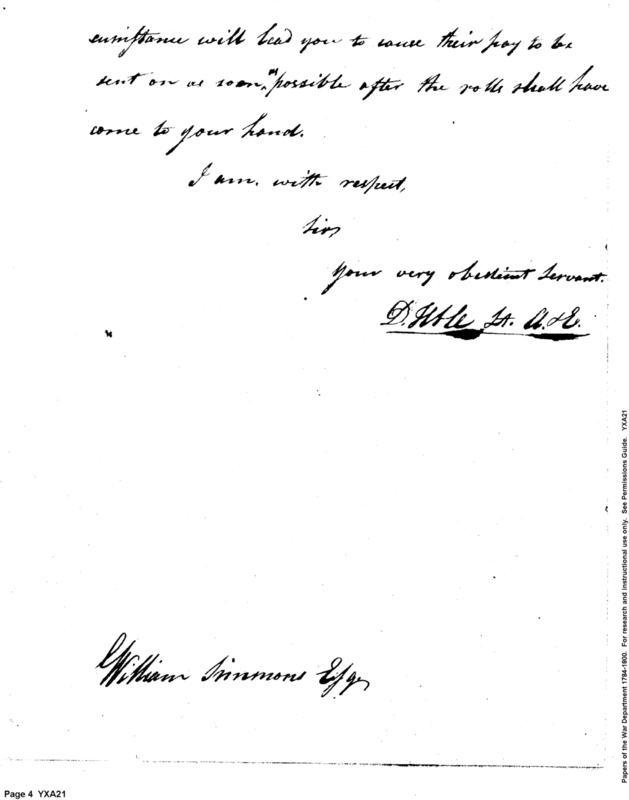 cumstance will lead you to cause their pay to be
sent on as soon as possible after the rolls shall have
come to your hand.
I am, with respect,
Sir,
Your very obedient Servant.
D. Lt. A. & E.
William Simmons Esqr,
Papers of the War Department 1784-1800. For research and instructional use only. See Permissions Guide. YXA21
Page 4 YXA21